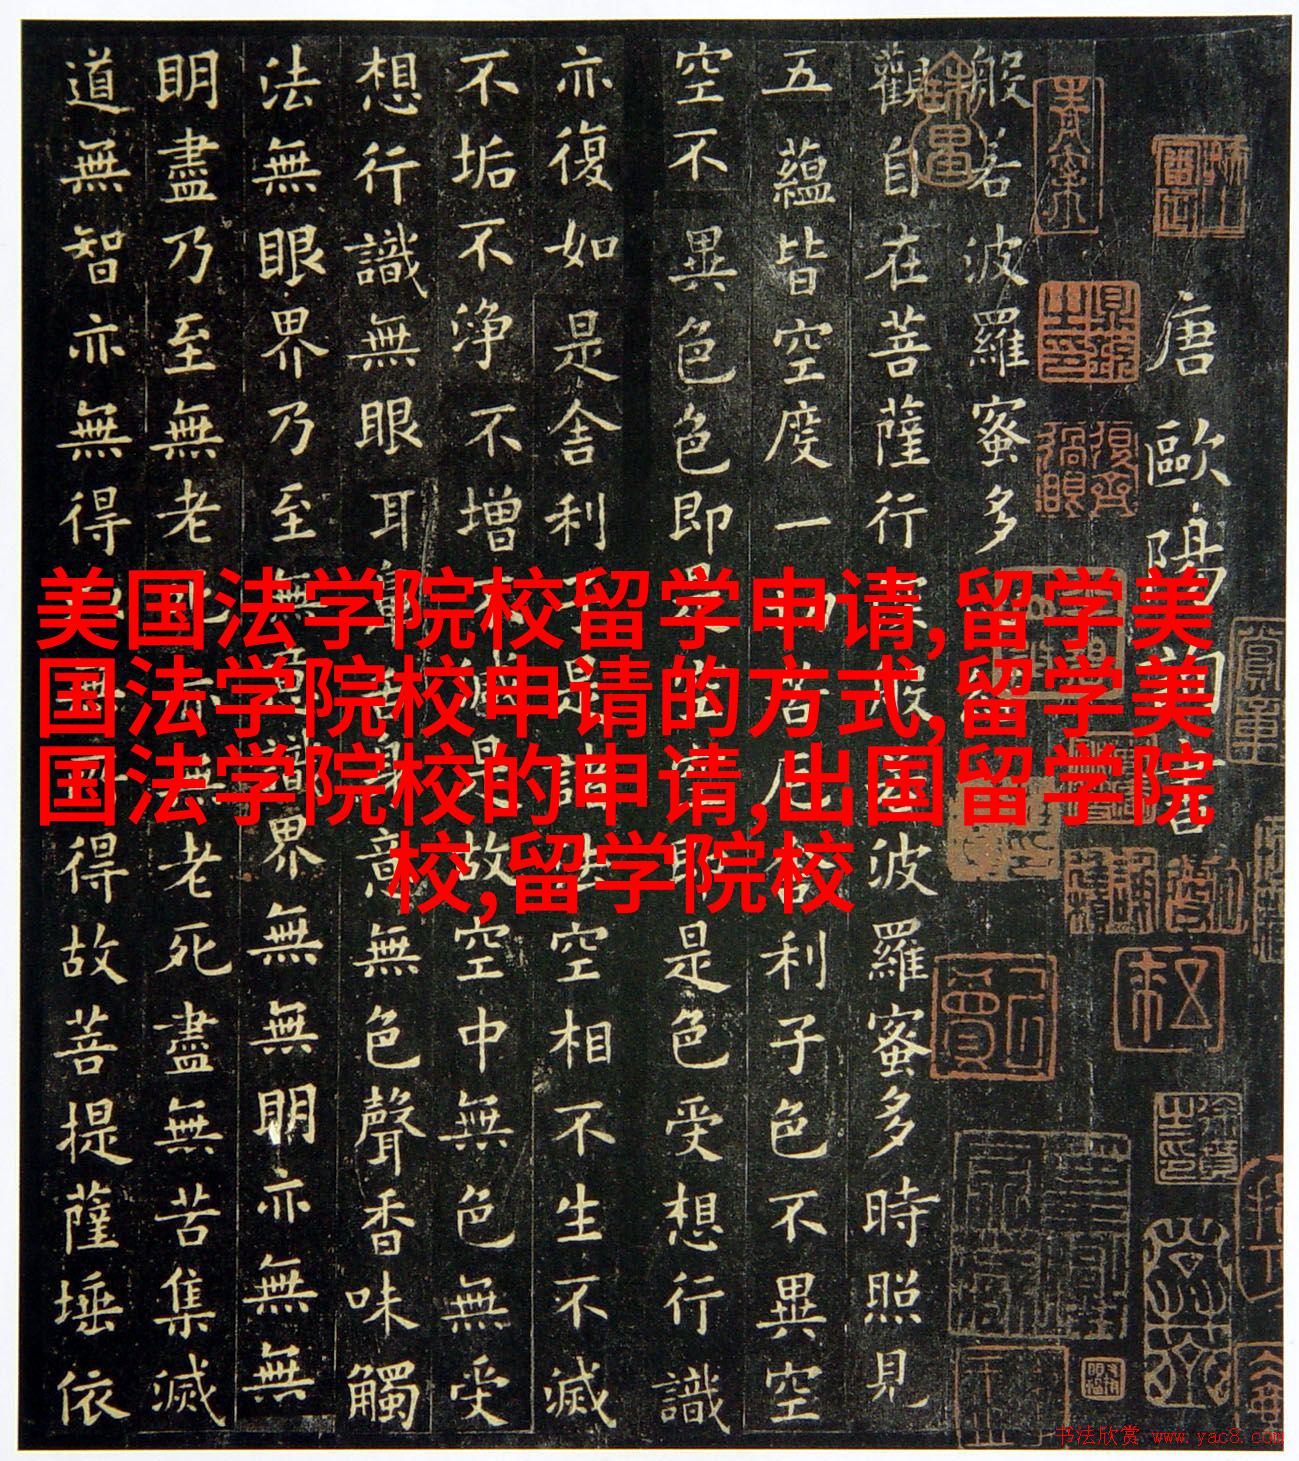 唐歐陽詢書
般若波羅蜜多心經
觀自在菩薩行深般若波羅蜜多時照見
五蘊皆空度一切苦厄舍利子色不異空
空不異色色即是空空即是色受想行識
亦復如是舍利子是諸法空相不生不滅
不垢不淨不增不減是故空中無色無受
想行識無眼耳鼻舌身意無色聲香味觸
法無眼界乃至無意識界無無明亦無無
明盡乃至無老死亦無老死盡無苦集滅
道無智亦無得以無所得故菩提薩埵依
美国法学院校留学申请,留学美
国法学院校申请的方式,留学美
国法学院校的申请,出国留学院
校,留学院校
书法欣赏 www.yac8.com